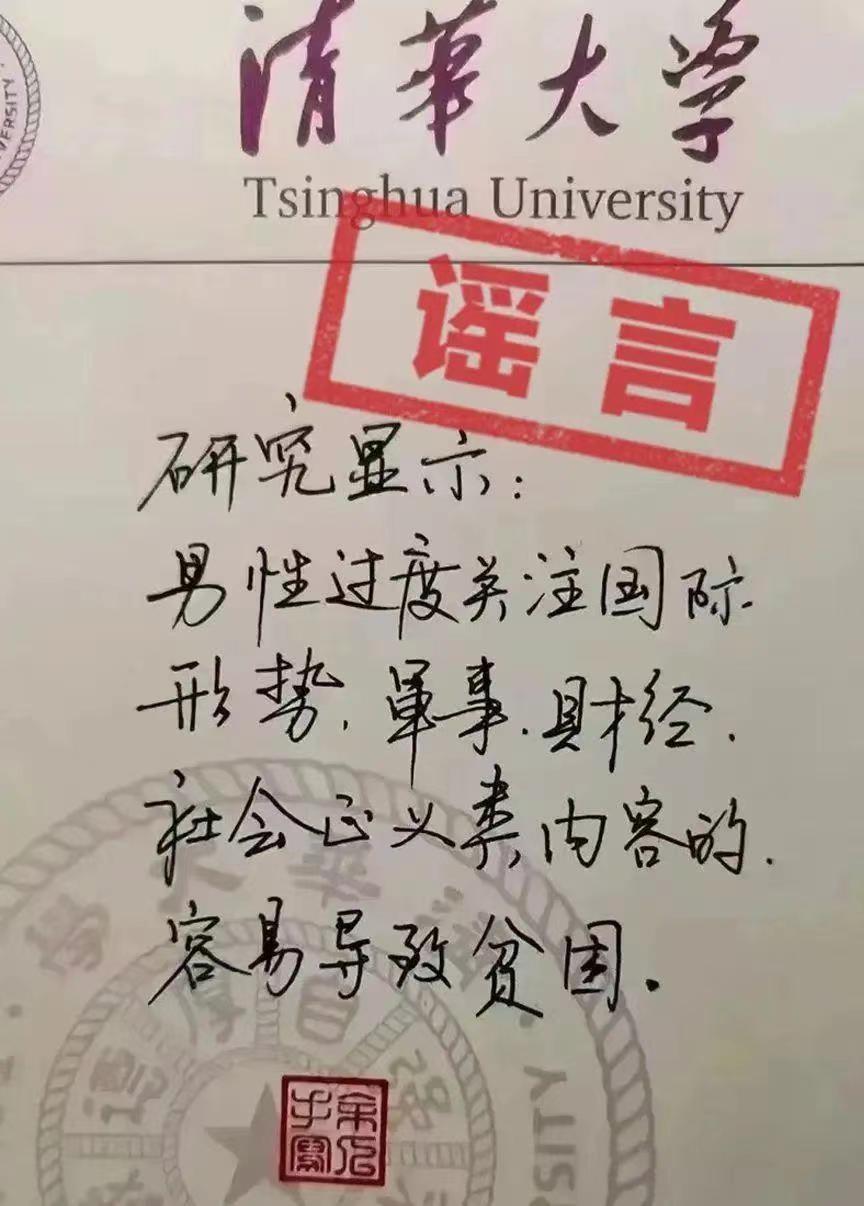 清華大学
Tsinghua University
谣言
研究显示:
男性过度关注国际
形势、军事、财经、
社会正义类内容的、
容易导致贫困.
ERSITY
SITY